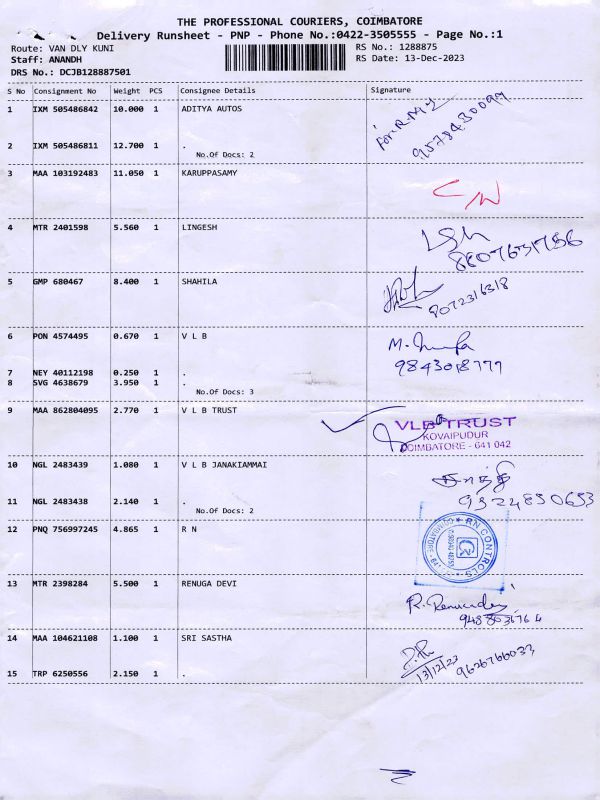 THE PROFESSIONAL COURIERS, COIMBATORE
Delivery Runsheet - PNP - Phone No.:0422-3505555 - Page No.:1
Route: VAN DLY KUNI RS No.: 1288875
Staff: ANANDH RS Date: 13-Dec-2023
DRS No.: DCJB128887501
S No Consignment No Weight PCS Consignee Details Signature
1 IXM 505486842 10.000 1 ADITYA AUTOS
2 IXM 505486811 12.700 1 .
No.Of Docs: 2
3 MAA 103192483 11.050 1 KARUPPASAMY
C/N
4 MTR 2401598 5.560 1 LINGESH
5 GMP 680467 8.400 1 SHAHILA
8072316318
6 PON 4574495 0.670 1 V L B
7 NEY 40112198 0.250 1 .
8 SVG 4638679 3.950 1 .
No.Of Docs: 3
9 MAA 862804095 2.770 1 V L B TRUST
VLB TRUST
KOVAIPUDUR
COIMBATORE - 641 042
10 NGL 2483439 1.080 1 V L B JANAKIAMMAI
11 NGL 2483438 2.140 1 .
No.Of Docs: 2
12 PNQ 756997245 4.865 1 R N
RN CONTROLS
13 MTR 2398284 5.500 1 RENUGA DEVI
14 MAA 104621108 1.100 1 SRI SASTHA
13/12/23 9626766033
15 TRP 6250556 2.150 1 .